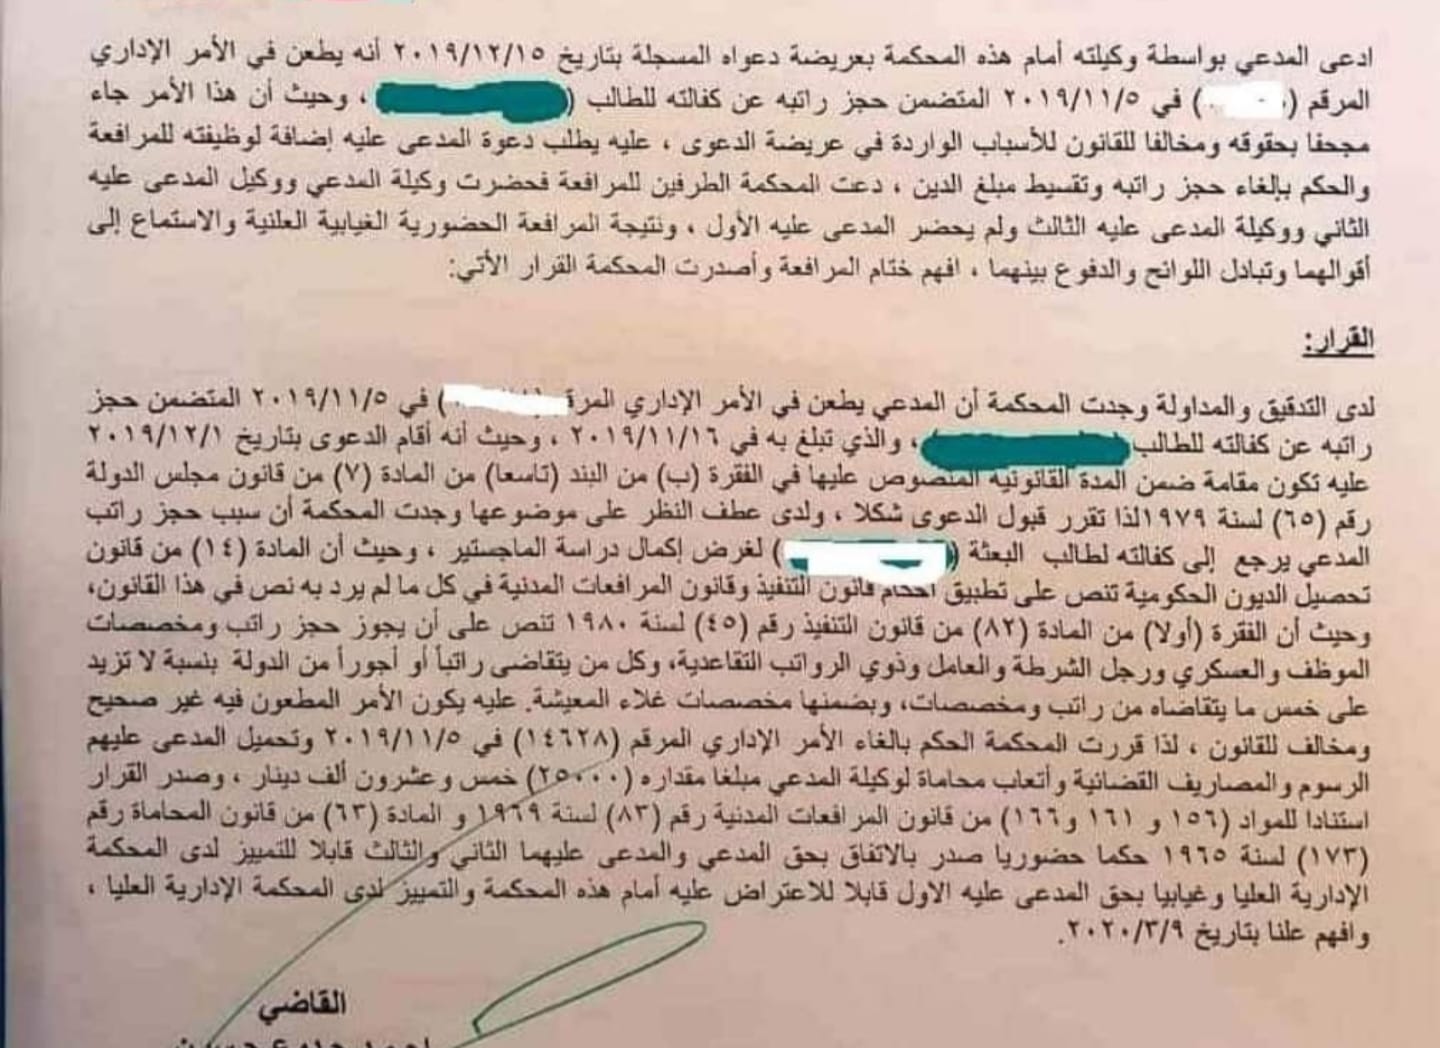 ادعى المدعي بواسطة وكيلته أمام هذه المحكمة بعريضة دعواه المسجلة بتاريخ ٢٠١٩/١٢/١٥ أنه يطعن في الأمر الإداري
المرقم ( ) في ٢٠١٩/١١/٥ المتضمن حجز راتبه عن كفالته للطالب ( ، وحيث أن هذا الأمر جاء
مجحفا بحقوقه ومخالفا للقانون للأسباب الواردة في عريضة الدعوى ، عليه يطلب دعوة المدعى عليه إضافة لوظيفته للمرافعة
والحكم بإلغاء حجز راتبه وتقسيط مبلغ الدين ، دعت المحكمة الطرفين للمرافعة فحضرت وكيلة المدعي ووكيل المدعى عليه
الثاني ووكيلة المدعى عليه الثالث ولم يحضر المدعى عليه الأول ، ونتيجة المرافعة الحضورية الغيابية العلنية والاستماع إلى
أقوالهما وتبادل اللوائح والدفوع بينهما ، افهم ختام المرافعة وأصدرت المحكمة القرار الأتي:
القرار:
لدى التدقيق والمداولة وجدت المحكمة أن المدعي يطعن في الأمر الإداري ( ) في ٢٠١٩/١١/٥ المتضمن حجز
راتبه عن كفالته للطالب ، والذي تبلغ به في ٢٠١٩/١١/١٦ ، وحيث أنه أقام الدعوى بتاريخ ٢٠١٩/١٢/١
عليه تكون مقامة ضمن المدة القانونية المنصوص عليها في الفقرة (ب) من البند (تاسعا) من المادة (٧) من قانون مجلس الدولة
رقم (٦٥) لسنة ١٩٧٩لذا تقرر قبول الدعوى شكلا ، ولدى عطف النظر على موضوعها وجدت المحكمة أن سبب حجز راتب
المدعي يرجع إلى كفالته لطالب البعثة ( ) لغرض إكمال دراسة الماجستير ، وحيث أن المادة (١٤) من قانون
تحصيل الديون الحكومية تنص على تطبيق احكام قانون التنفيذ وقانون المرافعات المدنية في كل ما لم يرد به نص في هذا القانون،
وحيث أن الفقرة (أولا) من المادة (٨٢) من قانون التنفيذ رقم (٤٥) لسنة ١٩٨٠ تنص على أن يجوز حجز راتب ومخصصات
الموظف والعسكري ورجل الشرطة والعامل وذوي الرواتب التقاعدية، وكل من يتقاضى راتباً أو أجوراً من الدولة بنسبة لا تزيد
على خمس ما يتقاضاه من راتب ومخصصات، وبضمنها مخصصات غلاء المعيشة. عليه يكون الأمر المطعون فيه غير صحيح
ومخالف للقانون ، لذا قررت المحكمة الحكم بالغاء الأمر الإداري المرقم (١٤٦٢٨) في ٢٠١٩/١١/٥ وتحميل المدعى عليهم
الرسوم والمصاريف القضائية وأتعاب محاماة لوكيلة المدعي مبلغا مقداره (٢٥٠٠٠) خمس وعشرون ألف دينار ، وصدر القرار
استنادا للمواد (١٥٦ و ١٦١ و١٦٦) من قانون المرافعات المدنية رقم (٨٣) لسنة ١٩٦٩ و المادة (٦٣) من قانون المحاماة رقم
(١٧٣) لسنة ١٩٦٥ حكما حضوريا صدر بالاتفاق بحق المدعي والمدعى عليهما الثاني والثالث قابلا للتمييز لدى المحكمة
الإدارية العليا وغيابيا بحق المدعى عليه الاول قابلا للاعتراض عليه أمام هذه المحكمة والتمييز لدى المحكمة الإدارية العليا ،
وافهم علنا بتاريخ ٢٠٢٠/٣/٩.
القاضي